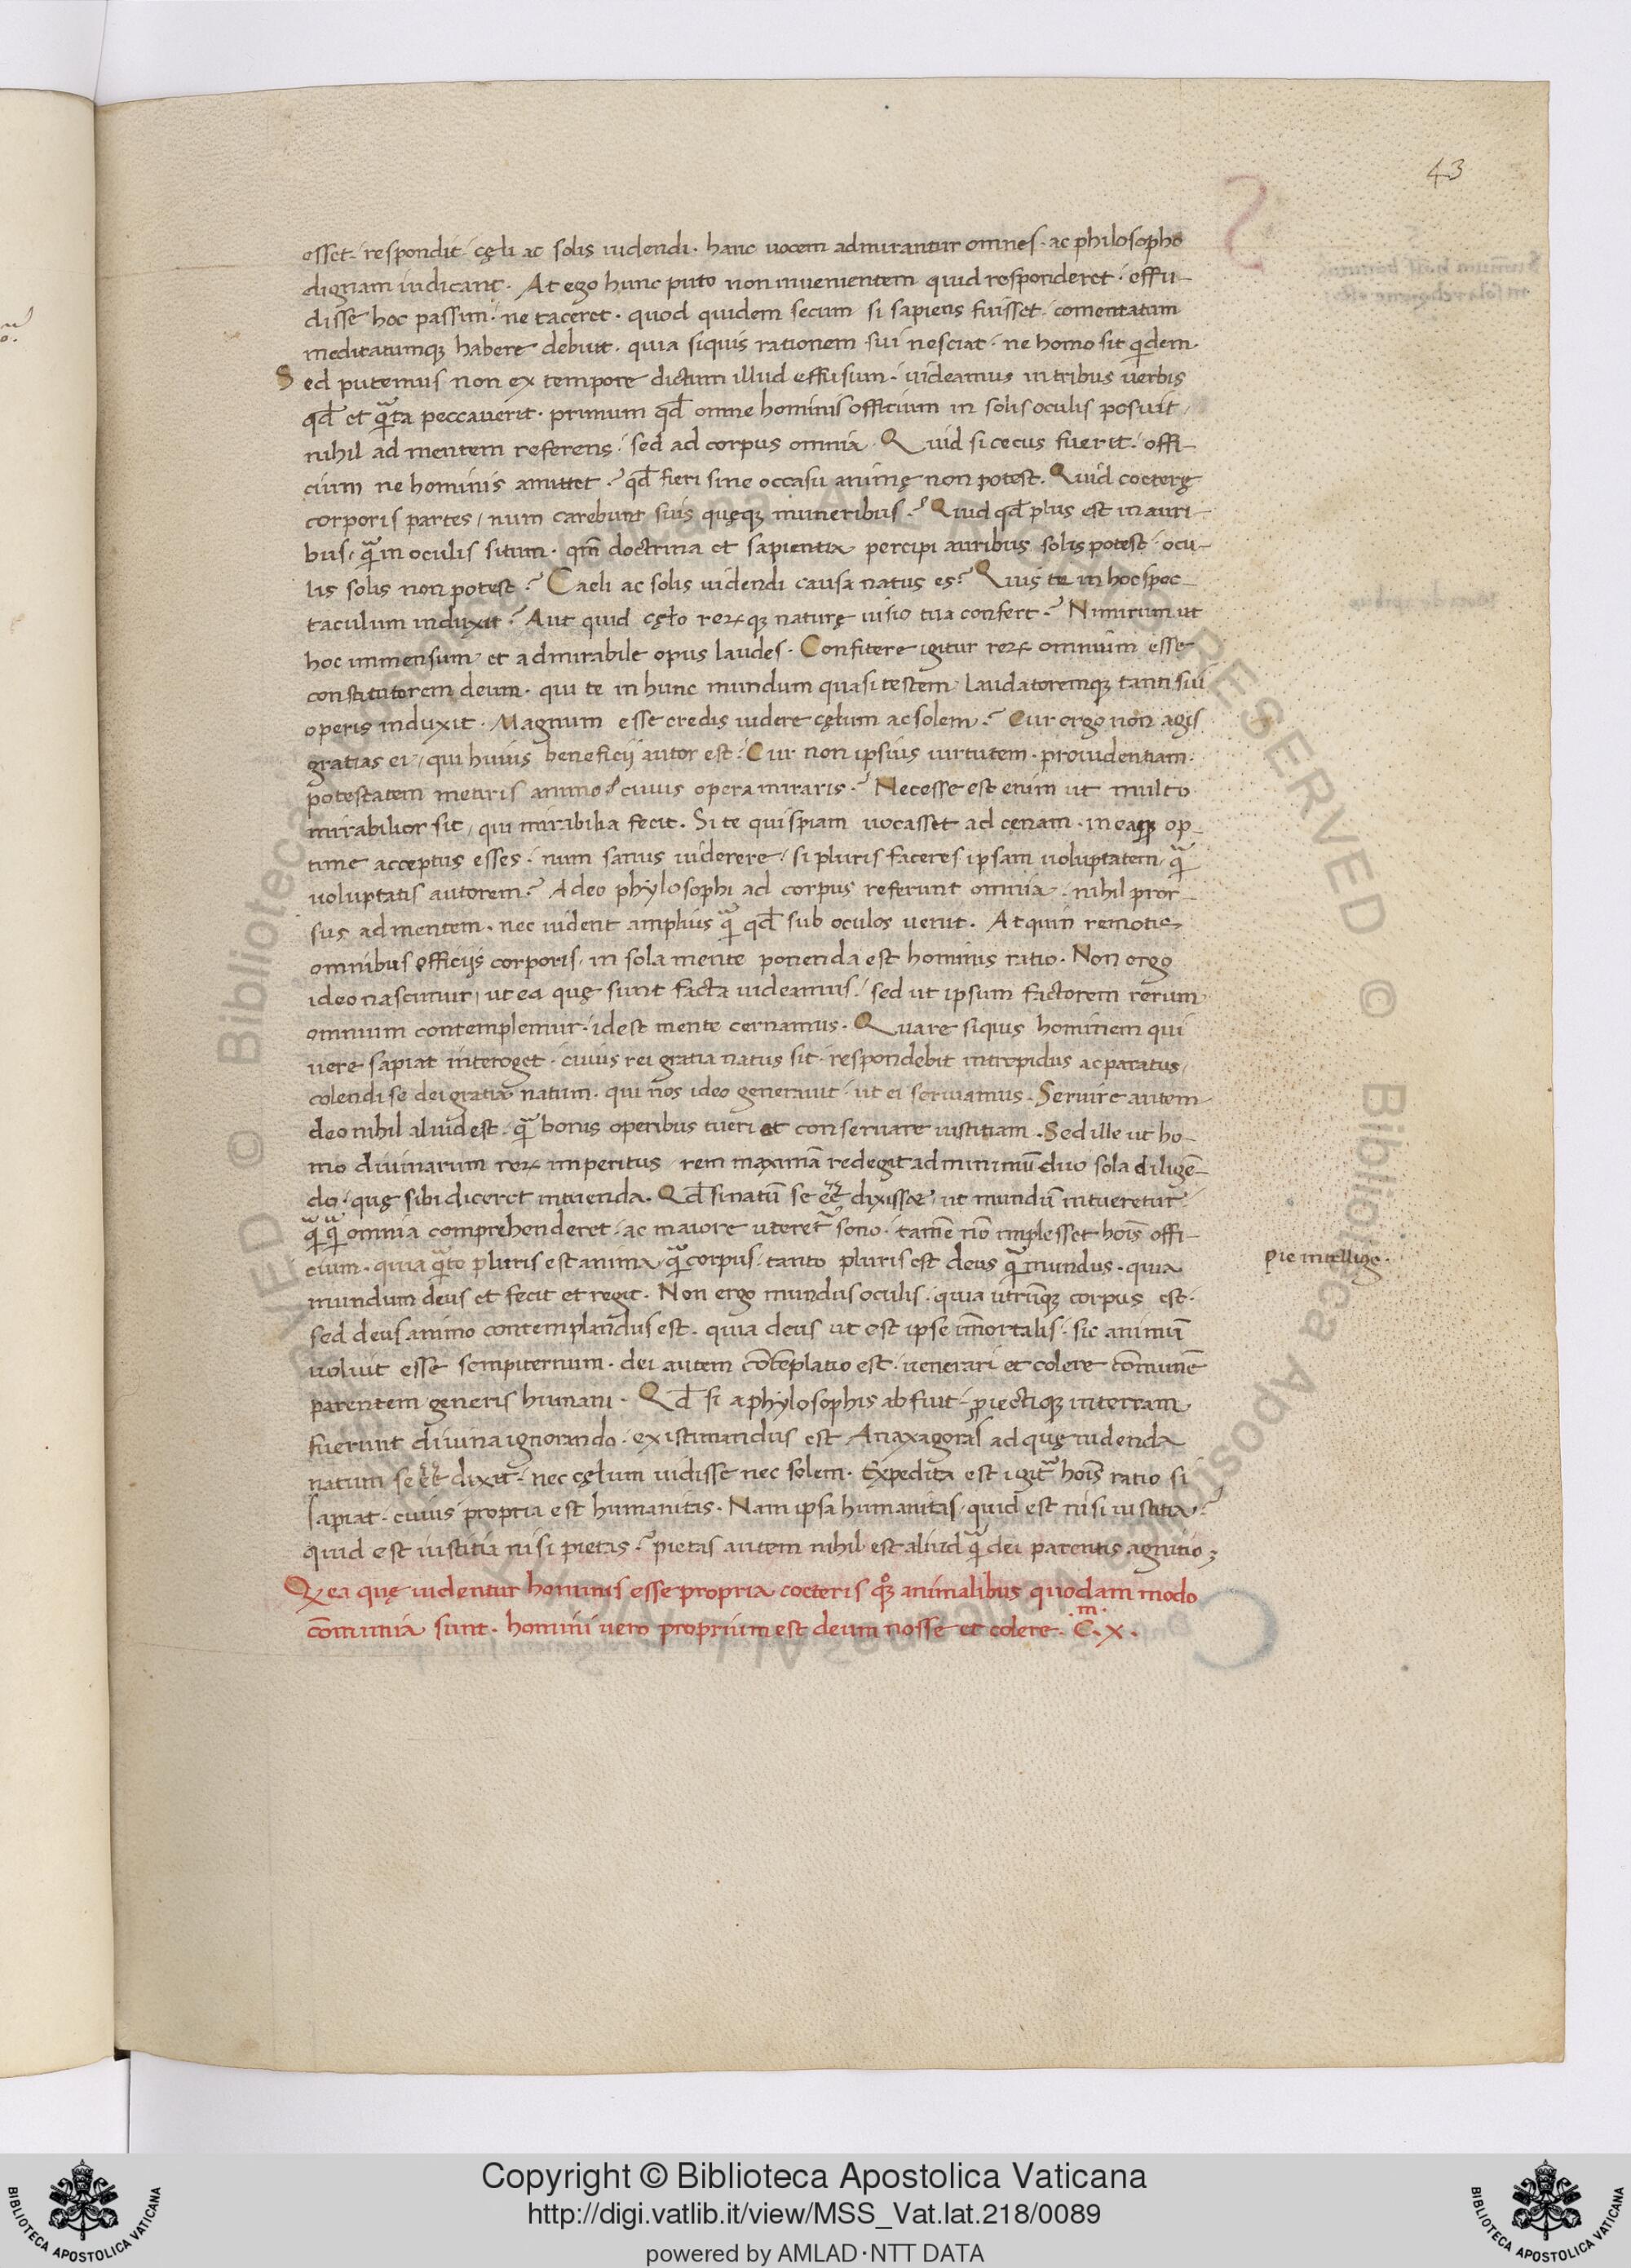 43
esset. respondit. cęli ac solis uidendi. hanc uocem admirantur omnes. ac philosopho
dignam iudicant. At ego hunc puto non inuenientem quid responderet. effu-
disse hoc passim. ne taceret. quod quidem secum si sapiens fuisset. comentatum
meditatumqꝫ habere debuit. quia siquis rationem sui nesciat. ne homo sit qͥdem.
Sed putemus non ex tempore dictum illud effusum. uideamus in tribus uerbis
qđ et qͣ̃ta peccauerit. primum qđ omne hominis officium in solis oculis posuit/
nihil ad mentem referens. sed ad corpus omnia. Quid si cecus fuerit. offi-
cium ne hominis amittet? qđ fieri sine occasu animę non potest. Quid coeterę
corporis partes/ num carebunt suis quęqꝫ muneribus? Quid qđ plus est in auri-
bus/ qͣ̃ in oculis situm. qm̃ doctrina et sapientia percipi auribus solis potest. ocu-
lis solis non potest? Caeli ac solis uidendi causa natus es? Quis te in hoc spec-
taculum induxit? Aut quid cęlo reꝝqꝫ naturę uisio tua confert? Nimirum ut
hoc immensum et admirabile opus laudes. Confitere igitur reꝝ omnium esse
constitutorem deum. qui te in hunc mundum quasi testem laudatoremqꝫ tanti sui
operis induxit. Magnum esse credis uidere cęlum ac solem? Cur ergo non agis
gratias ei/ qui huius beneficij autor est? Cur non ipsius uirtutem. prouidentiam.
potestatem metiris animo/ cuius opera miraris? Necesse est enim ut multo
mirabilior sit/ qui mirabilia fecit. Si te quispiam uocasset ad cenam. in eaqꝫ op-
time acceptus esses. num sanus uiderere/ si pluris faceres ipsam uoluptatem/ qͣ̃
uoluptatis autorem? Adeo phylosophi ad corpus referunt omnia. nihil pror-
sus ad mentem. nec uident amplius qͣ̃ qđ sub oculos uenit. Atquin remotis
omnibus officijs corporis/ in sola mente ponenda est hominis ratio. Non ergo
ideo nascimur/ ut ea quę sunt facta uideamus/ sed ut ipsum factorem rerum
omnium contemplemur. idest mente cernamus. Quare siquis hominem qui
uere sapiat interoget. cuius rei gratia natus sit. respondebit intrepidus ac paratus/
colendi se dei gratia natum. qui nos ideo generauit. ut ei seruiamus. Seruire autem
deo nihil aliud est. qͣ̃ bonis operibus tueri et conseruare iustitiam. Sed ille ut ho-
mo diuinarum reꝝ imperitus/ rem maximã redegit ad minimũ duo sola diligẽ-
do. quę sibi diceret intuenda. Qđ si natũ se eē dixisset/ ut mundũ intueretur
qͣ̃qͣ̃ omnia comprehenderet. ac maiore uteret᷑ sono. tamẽ nõ implesset hoĩs offi-
cium. quia qͣ̃to pluris est anima qͣ̃ corpus. tanto pluris est deus qͣ̃ mundus. quia
mundum deus et fecit et regit. Non ergo mundus oculis. quia utrũqꝫ corpus est.
sed deus animo contemplandus est. quia deus ut est ipse im̃ortalis. sic animũ
uoluit esse sempiternum. dei autem cõtẽplatio est. uenerari et colere com̃unẽ
parentem generis humani. Qđ si a phylosophis abfuit. ꝓiectiqꝫ in terram
fuerunt diuina ignorando. existimandus est Anaxagoras ad quę uidenda
natum se eē dixit. nec cęlum uidisse nec solem. Expedita est igit᷑ hoĩs ratio si
sapiat. cuius propria est humanitas. Nam ipsa humanitas/ quid est nisi iustitia?
quid est iustitia nisi pietas? pietas autem nihil est aliud qͣ̃ dei parentis agnitio;
Pie intellige.
Ex ea quę uidentur hominis esse propria coeteris qͦꝫ animalibus quodam modo
com̃unia sunt. homini uero proprium est deum nosse et colere. C.ᵐ x.
Copyright © Biblioteca Apostolica Vaticana
http://digi.vatlib.it/view/MSS_Vat.lat.218/0089
powered by AMLAD·NTT DATA